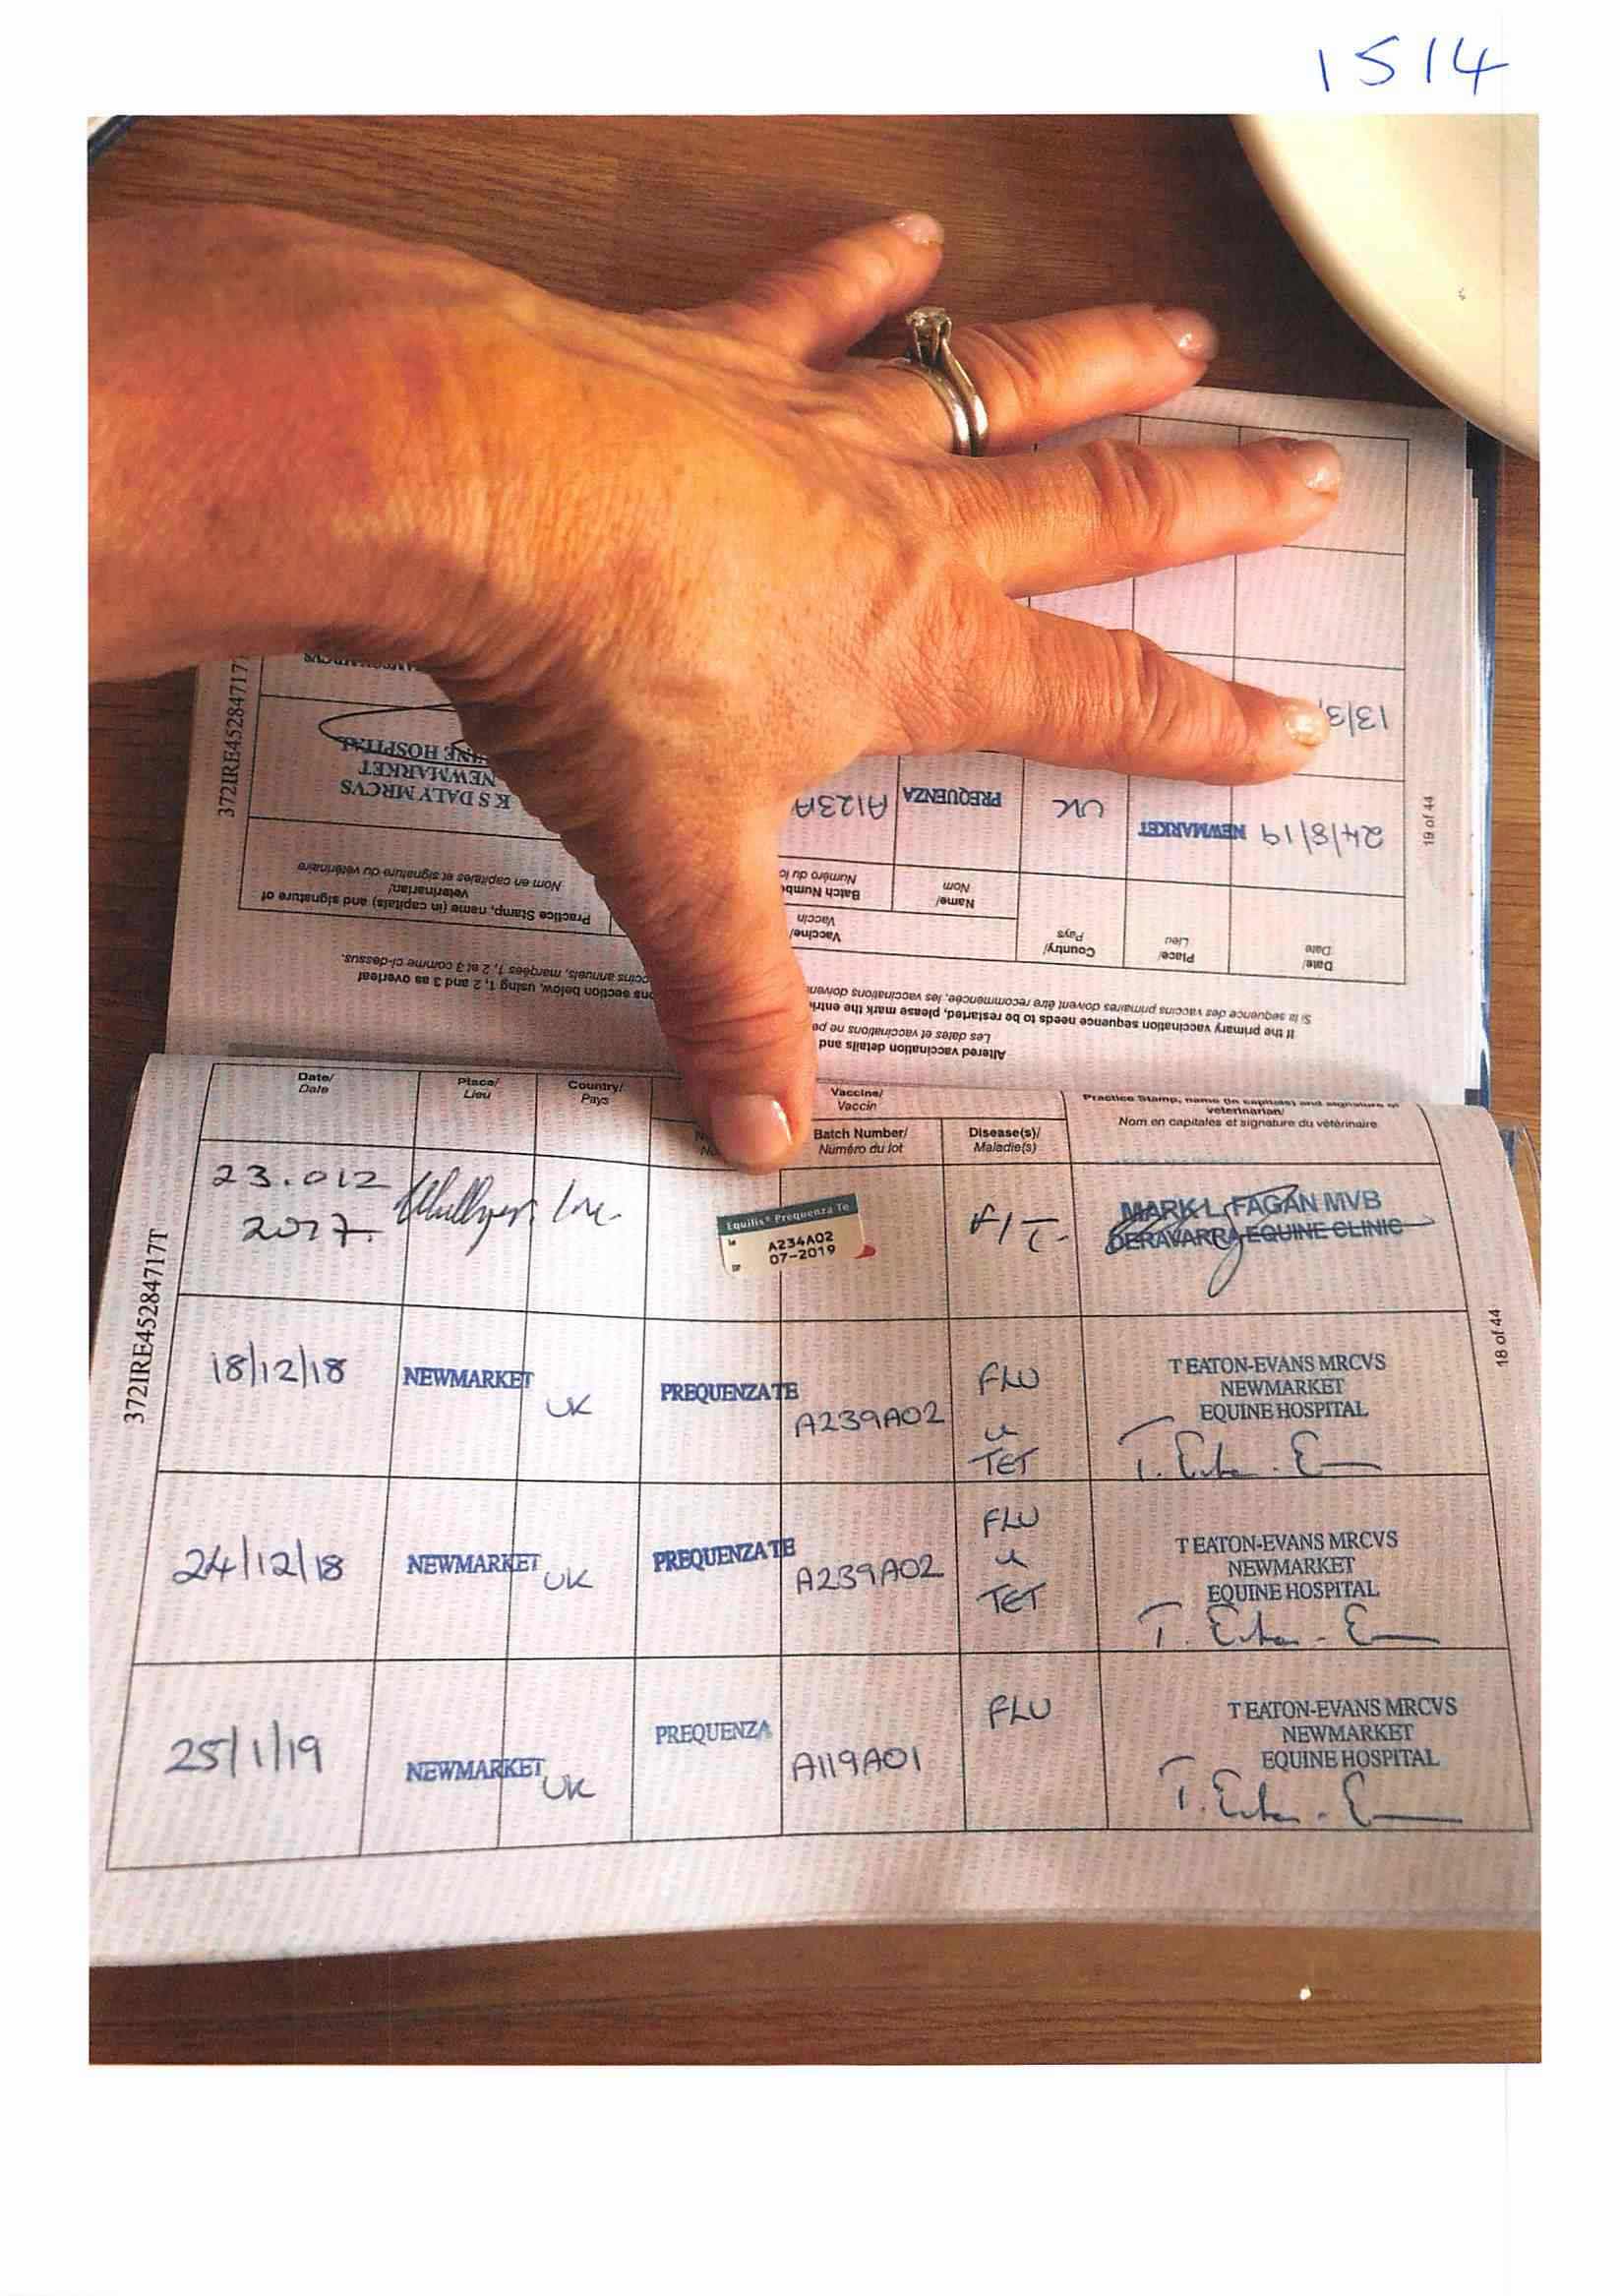 1514
372IRE45284717
K S DALY MRCVS
NEWMARKET
HOSPITAL
24/8/19 NEWMARKET UK PREQUENZA A123A
13/3
19 of 44
Practice Stamp, name (in capitals) and signature of
veterinarian/
Nom en capitales et signature du vétérinaire
Date/
Date
Place/
Lieu
Country/
Pays
Vaccine/
Vaccin
Name/
Nom
Batch Numb
Numéro du lo
Altered vaccination details and
Les dates et vaccinations ne pe
If the primary vaccination sequence needs to be restarted, please mark the entri
ons section below, using 1, 2 and 3 as overleaf
Si la séquence des vaccins primaires doivent être recommencée, les vaccinations doiven
coins annuels, marquées 1, 2 et 3 comme ci-dessus.
Date/
Date
Place/
Lieu
Country/
Pays
Vaccine/
Vaccin
Batch Number/
Numéro du lot
Disease(s)/
Maladie(s)
Practice Stamp, name (in capitals) and signature of
veterinarian/
Nom en capitales et signature du vétérinaire
372IRE45284717T
18 of 44
23.012
2017.
Equilis® Prequenza Te
A234A02
07-2019
F/T.
MARK L FAGAN MVB
DERAVARRA EQUINE CLINIC
18/12/18 NEWMARKET UK PREQUENZA TE A239A02 FLU
&
TET
T EATON-EVANS MRCVS
NEWMARKET
EQUINE HOSPITAL
24/12/18 NEWMARKET UK PREQUENZA TE A239A02 FLU
&
TET
T EATON-EVANS MRCVS
NEWMARKET
EQUINE HOSPITAL
25/1/19 NEWMARKET UK PREQUENZA A119A01 FLU
T EATON-EVANS MRCVS
NEWMARKET
EQUINE HOSPITAL